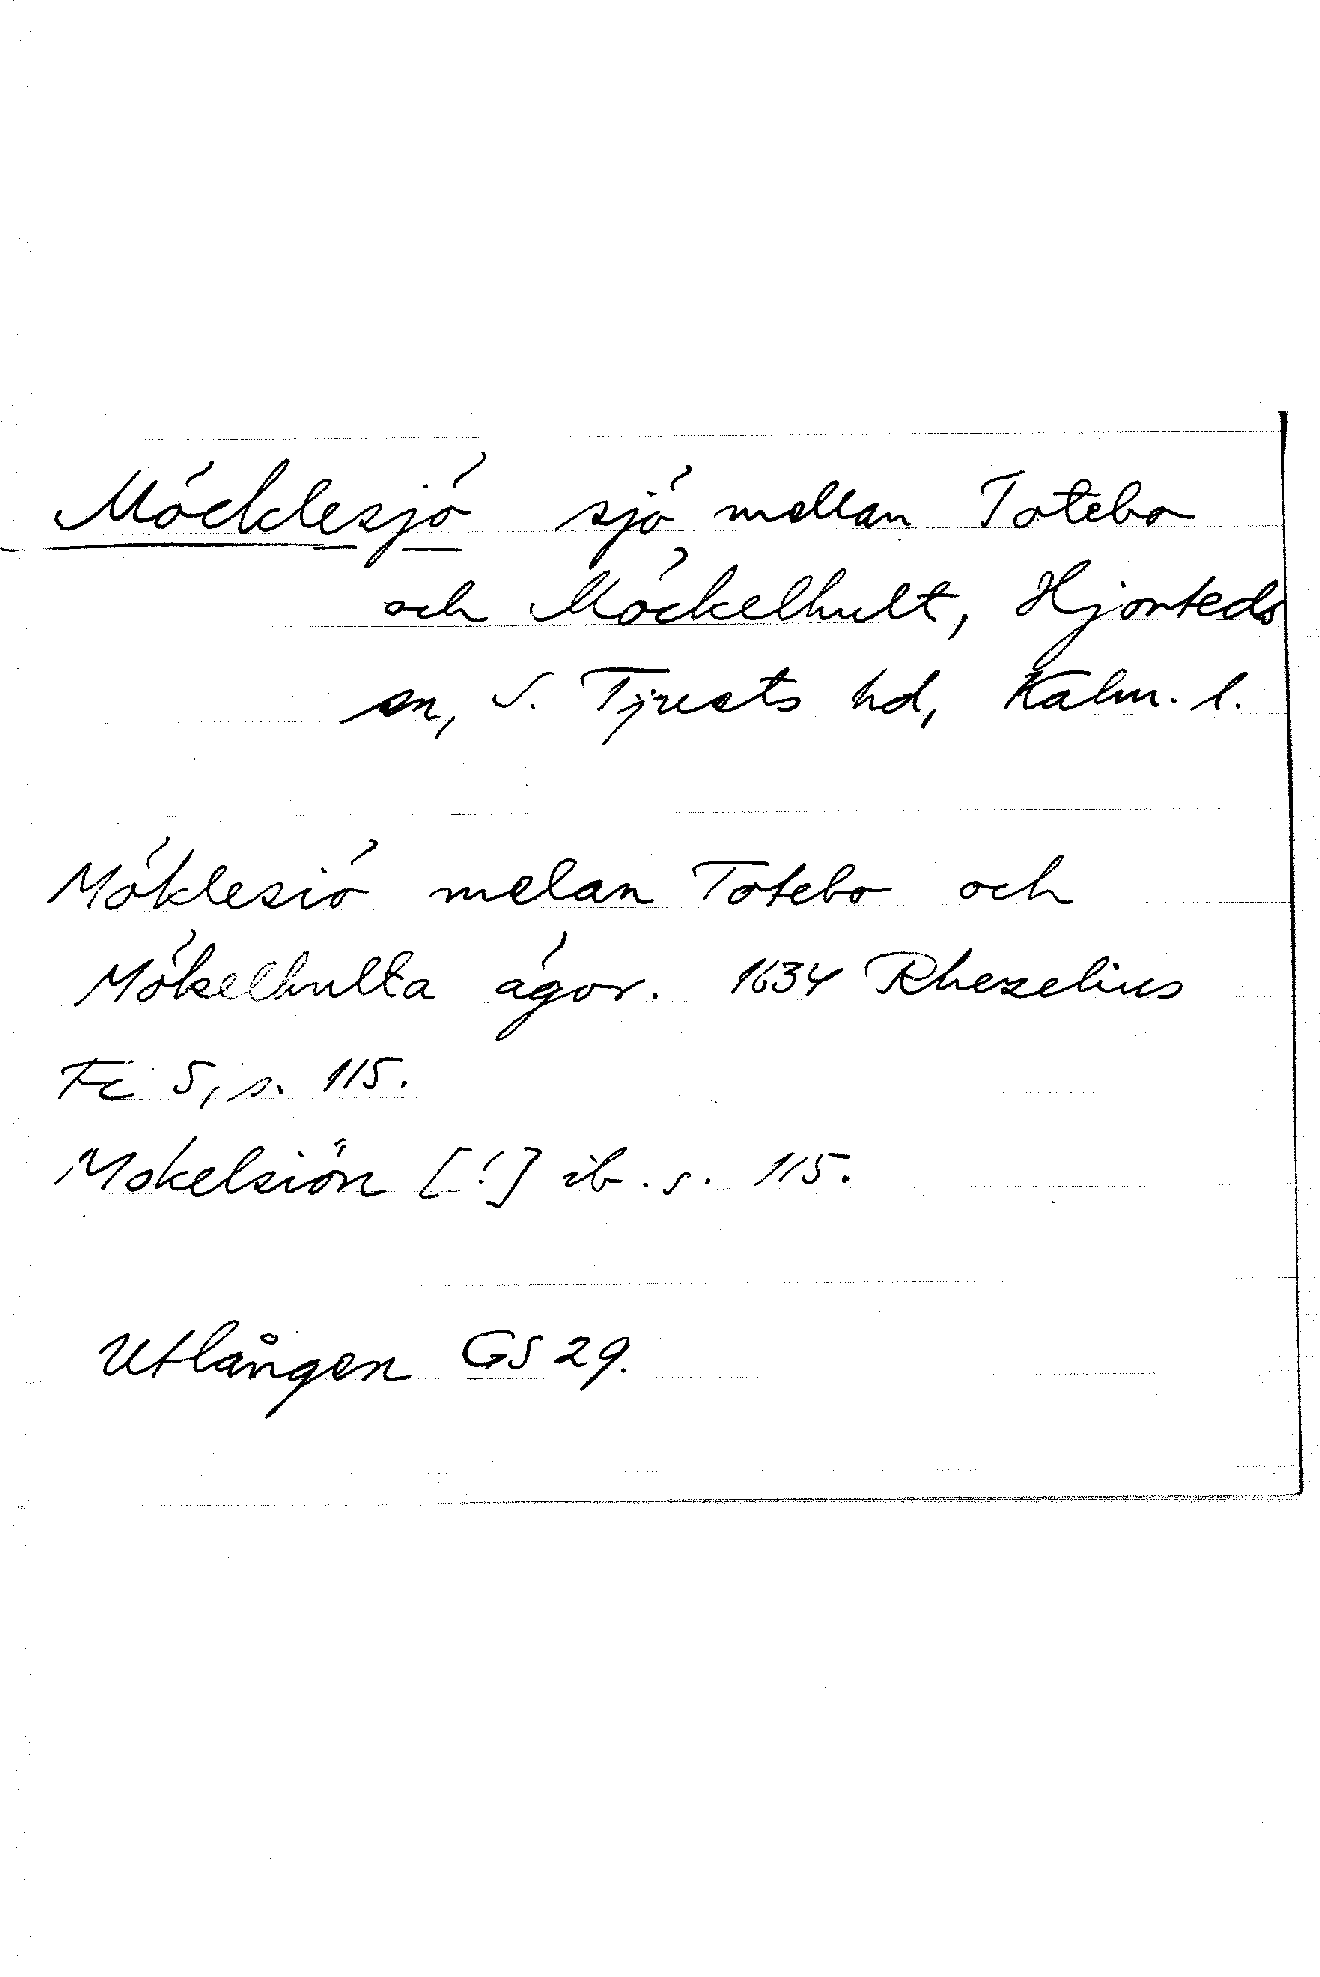 Möcklesjö sjö mellan Totebo
och Möckelhult, Hjorteds
sn, S. Tjusts hd, Kalm. l.
Möklesiö melan Totebo och
Mökelhulta ägor. 1634 Rhezelius
Fc 5, s. 115.
Mokelsiön [!] ib. s. 115.
Utlången GS 29.